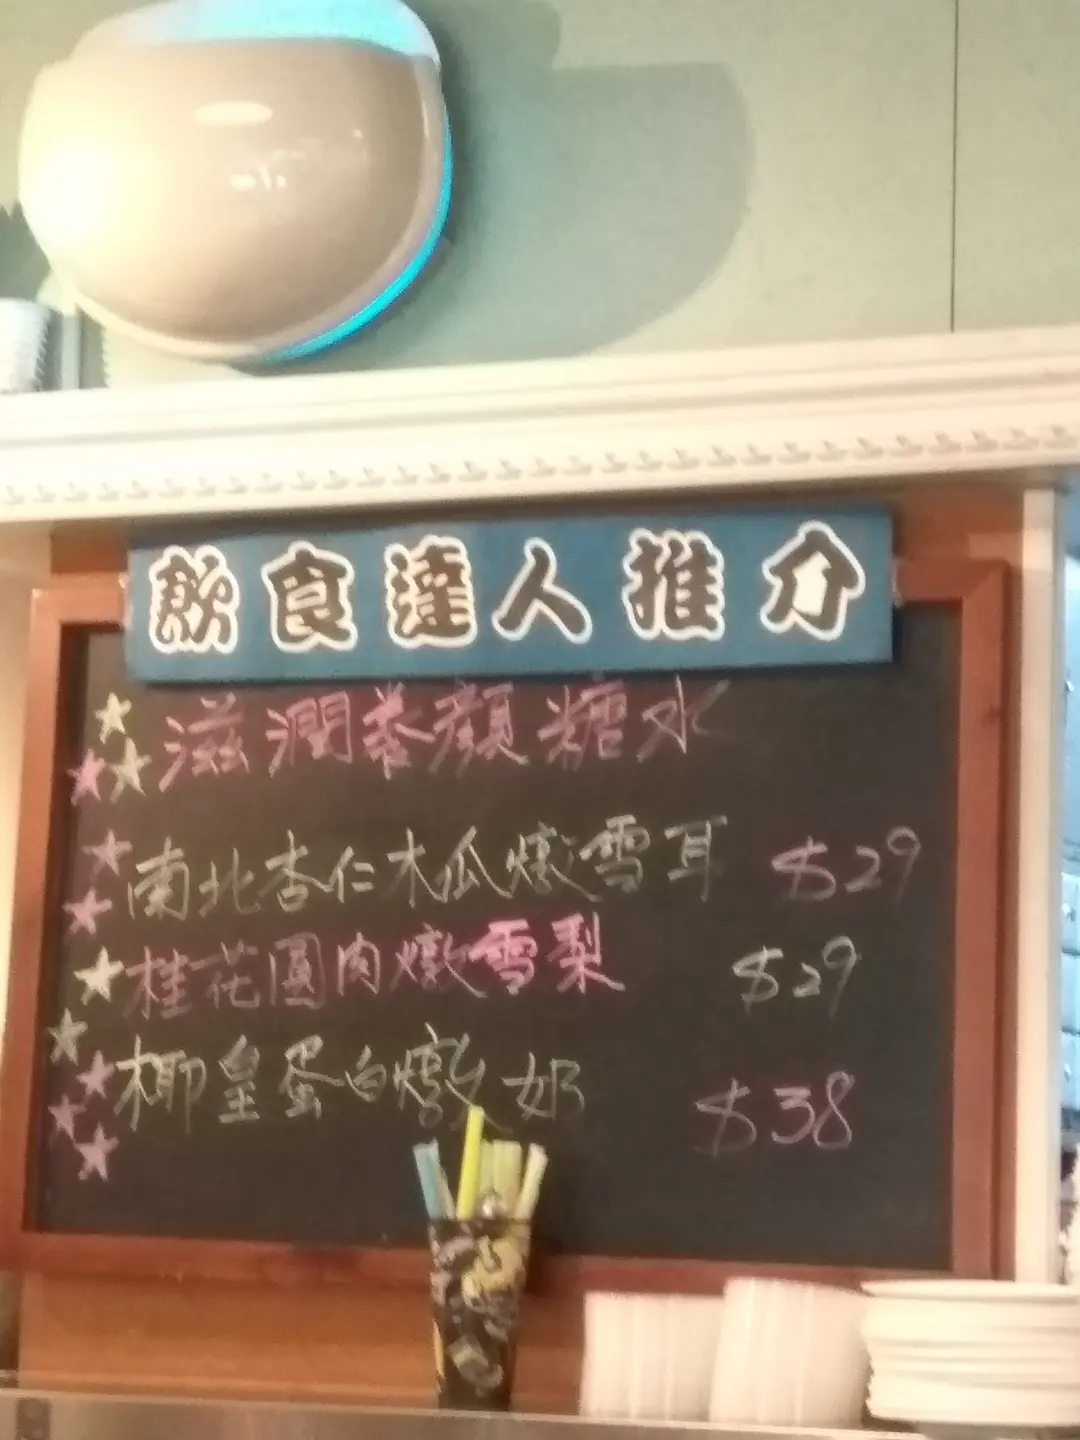 飲食達人推介
滋潤养顏糖水
南北杏仁木瓜燉雪耳 $29
桂花圓肉燉雪梨 $29
椰皇蛋白燉奶 $38